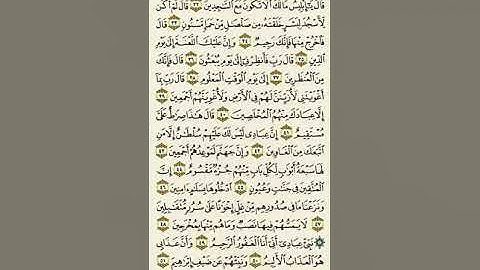 قَالَ يَٰٓإِبۡلِيسُ مَالَكَ أَلَّا تَكُونَ مَعَ ٱلسَّٰجِدِينَ ٣٢ قَالَ لَمۡ أَكُن
لِّأَسۡجُدَ لِبَشَرٍ خَلَقۡتَهُۥ مِن صَلۡصَٰلٖ مِّنۡ حَمَإٖ مَّسۡنُونٖ ٣٣ قَالَ
فَٱخۡرُجۡ مِنۡهَا فَإِنَّكَ رَجِيمٞ ٣٤ وَإِنَّ عَلَيۡكَ ٱللَّعۡنَةَ إِلَىٰ يَوۡمِ ٱلدِّينِ
٣٥ قَالَ رَبِّ فَأَنظِرۡنِيٓ إِلَىٰ يَوۡمِ يُبۡعَثُونَ ٣٦ قَالَ فَإِنَّكَ
مِنَ ٱلۡمُنظَرِينَ ٣٧ إِلَىٰ يَوۡمِ ٱلۡوَقۡتِ ٱلۡمَعۡلُومِ ٣٨ قَالَ رَبِّ بِمَآ
أَغۡوَيۡتَنِي لَأُزَيِّنَنَّ لَهُمۡ فِي ٱلۡأَرۡضِ وَلَأُغۡوِيَنَّهُمۡ أَجۡمَعِينَ ٣٩
إِلَّا عِبَادَكَ مِنۡهُمُ ٱلۡمُخۡلَصِينَ ٤٠ قَالَ هَٰذَا صِرَٰطٌ عَلَيَّ
مُسۡتَقِيمٌ ٤١ إِنَّ عِبَادِي لَيۡسَ لَكَ عَلَيۡهِمۡ سُلۡطَٰنٌ إِلَّا مَنِ
ٱتَّبَعَكَ مِنَ ٱلۡغَاوِينَ ٤٢ وَإِنَّ جَهَنَّمَ لَمَوۡعِدُهُمۡ أَجۡمَعِينَ ٤٣
لَهَا سَبۡعَةُ أَبۡوَٰبٖ لِّكُلِّ بَابٖ مِّنۡهُمۡ جُزۡءٞ مَّقۡسُومٌ ٤٤ إِنَّ
ٱلۡمُتَّقِينَ فِي جَنَّٰتٖ وَعُيُونٍ ٤٥ ٱدۡخُلُوهَا بِسَلَٰمٍ ءَامِنِينَ ٤٦
وَنَزَعۡنَا مَا فِي صُدُورِهِم مِّنۡ غِلٍّ إِخۡوَٰنًا عَلَىٰ سُرُرٖ مُّتَقَٰبِلِينَ
٤٧ لَا يَمَسُّهُمۡ فِيهَا نَصَبٞ وَمَا هُم مِّنۡهَا بِمُخۡرَجِينَ ٤٨
۞ نَبِّئۡ عِبَادِيٓ أَنِّيٓ أَنَا ٱلۡغَفُورُ ٱلرَّحِيمُ ٤٩ وَأَنَّ عَذَابِي
هُوَ ٱلۡعَذَابُ ٱلۡأَلِيمُ ٥٠ وَنَبِّئۡهُمۡ عَن ضَيۡفِ إِبۡرَٰهِيمَ ٥١